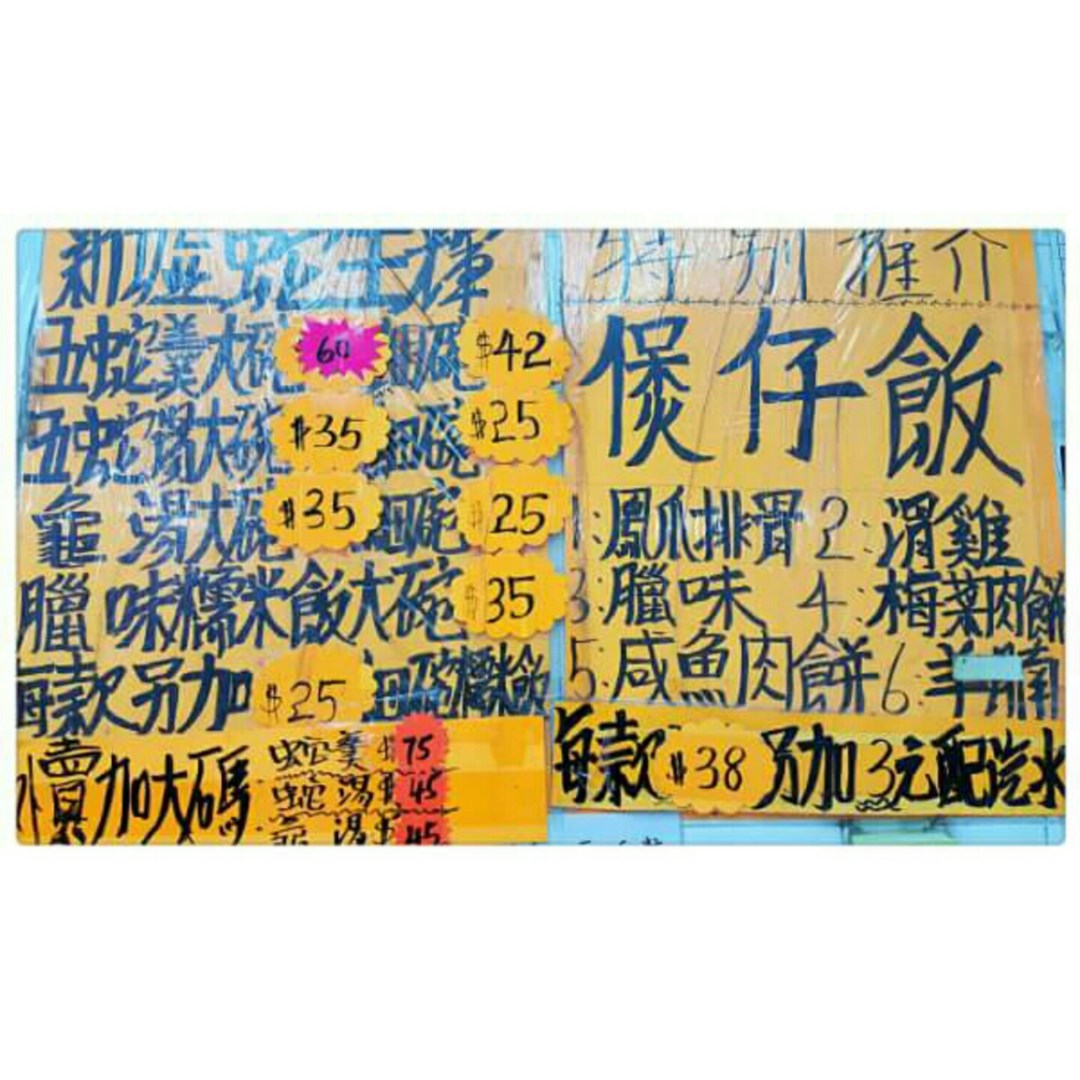 五蛇羹大碗 60 細碗 $42
五蛇湯大碗 $35 細碗 $25
龜 湯大碗 $35 細碗 $25
臘味糯米飯大碗 $35
每款另加 $25 細碗糯米飯
外賣加大碼 蛇羹 $75
蛇湯 $45
龜湯 $45
特別推介
煲仔飯
1:鳳爪排骨 2:滑雞
3:臘味 4:梅菜肉餅
5:咸魚肉餅 6:羊腩
每款 $38 另加3元配汽水